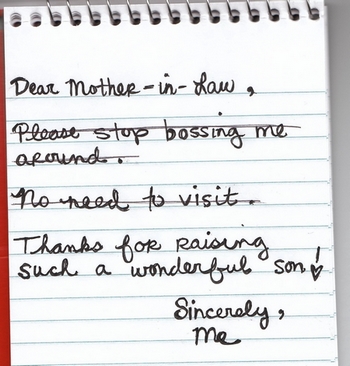 Dear Mother-in-Law,
Please stop bossing me
around.
No need to visit.
Thanks for raising
such a wonderful son!
Sincerely,
Me